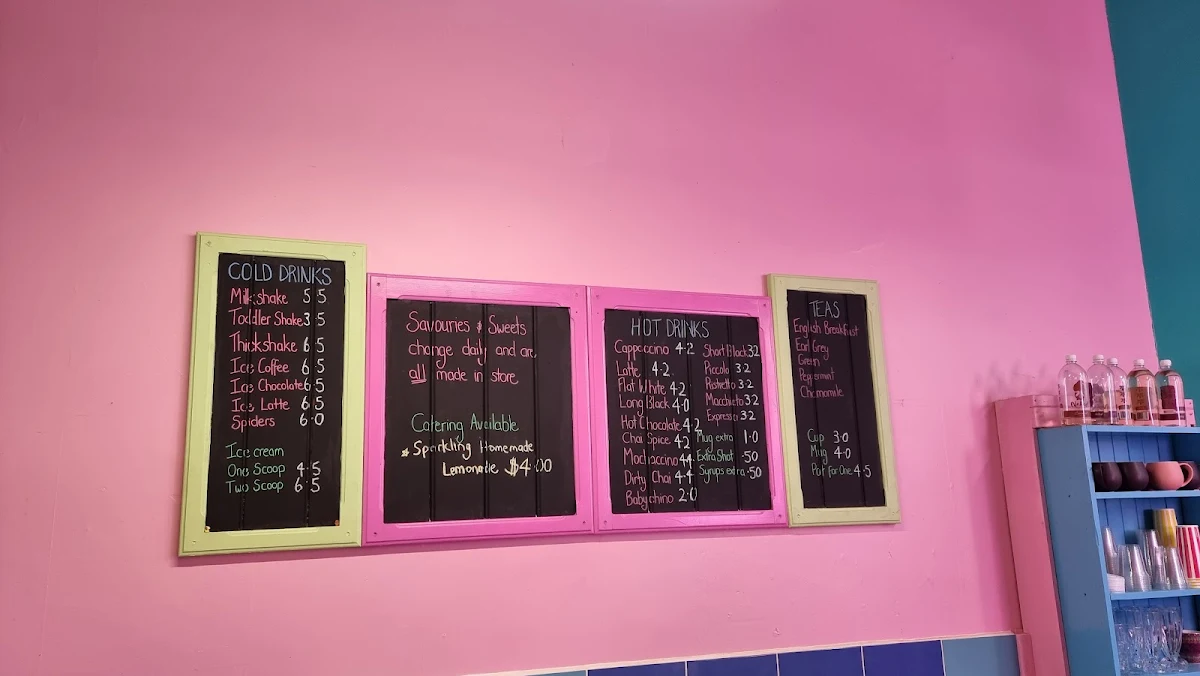 COLD DRINKS
Milkshake 5.5
Toddler Shake 3.5
Thickshake 6.5
Ice Coffee 6.5
Ice Chocolate 6.5
Ice Latte 6.5
Spiders 6.0
Ice cream
One Scoop 4.5
Two Scoop 6.5
Savouries & Sweets
change daily and are
all made in store
Catering Available
* Sparkling Homemade
Lemonade $4.00
HOT DRINKS
Cappoccino 4.2
Latte 4.2
Flat White 4.2
Long Black 4.0
Hot Chocolate 4.2
Chai Spice 4.2
Mochaccino 4.4
Dirty Chai 4.4
Babychino 2.0
Short Black 3.2
Piccolo 3.2
Ristretto 3.2
Macchiato 3.2
Espresso 3.2
Mug extra 1.0
Extra Shot .50
Syrups extra .50
TEAS
English Breakfast
Earl Grey
Green
Peppermint
Chamomile
Cup 3.0
Mug 4.0
Pot for One 4.5